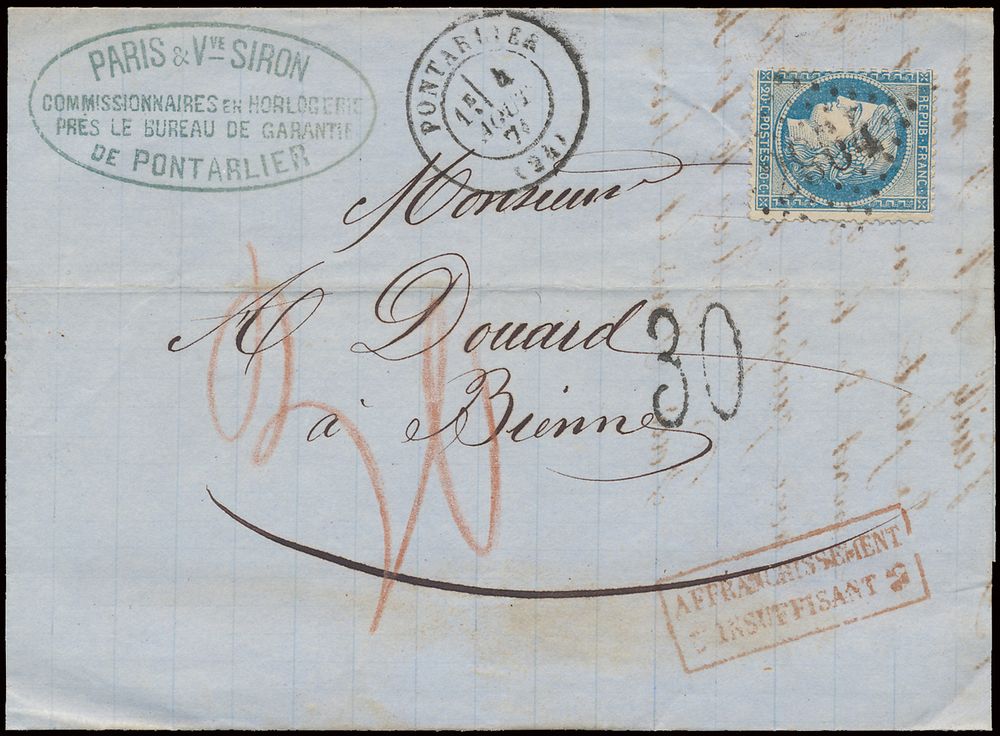 PARIS & Vᵛᴱ SIRON
COMMISSIONNAIRES EN HORLOGERIE
PRÈS LE BUREAU DE GARANTIE
DE PONTARLIER
PONTARLIER
4
AOUT
(24)
REPUB. FRANC.
20.C. POSTES. 20.C.
Monsieur
A. Douard
à Bienne
30
AFFRANCHISSEMENT
INSUFFISANT